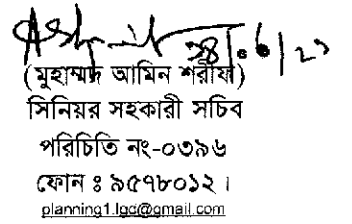 (মুহাম্মদ আমিন শরীফ)
সিনিয়র সহকারী সচিব
পরিচিতি নং-০৩৯৬
ফোন ঃ ৯৫৭৮০১২ ।
planning1.lgd@gmail.com